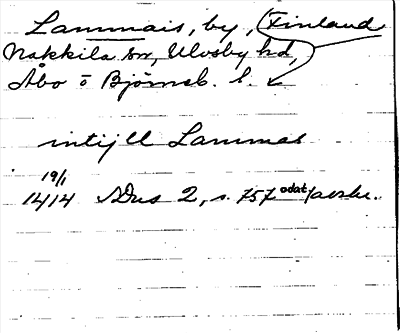 Lammais, by, Finland
Nakkila sn, Ulvsby hd,
Åbo o Björneb. l.
intill Lammas
19/1
1414 SDns 2, s. 757 odat/avskr.